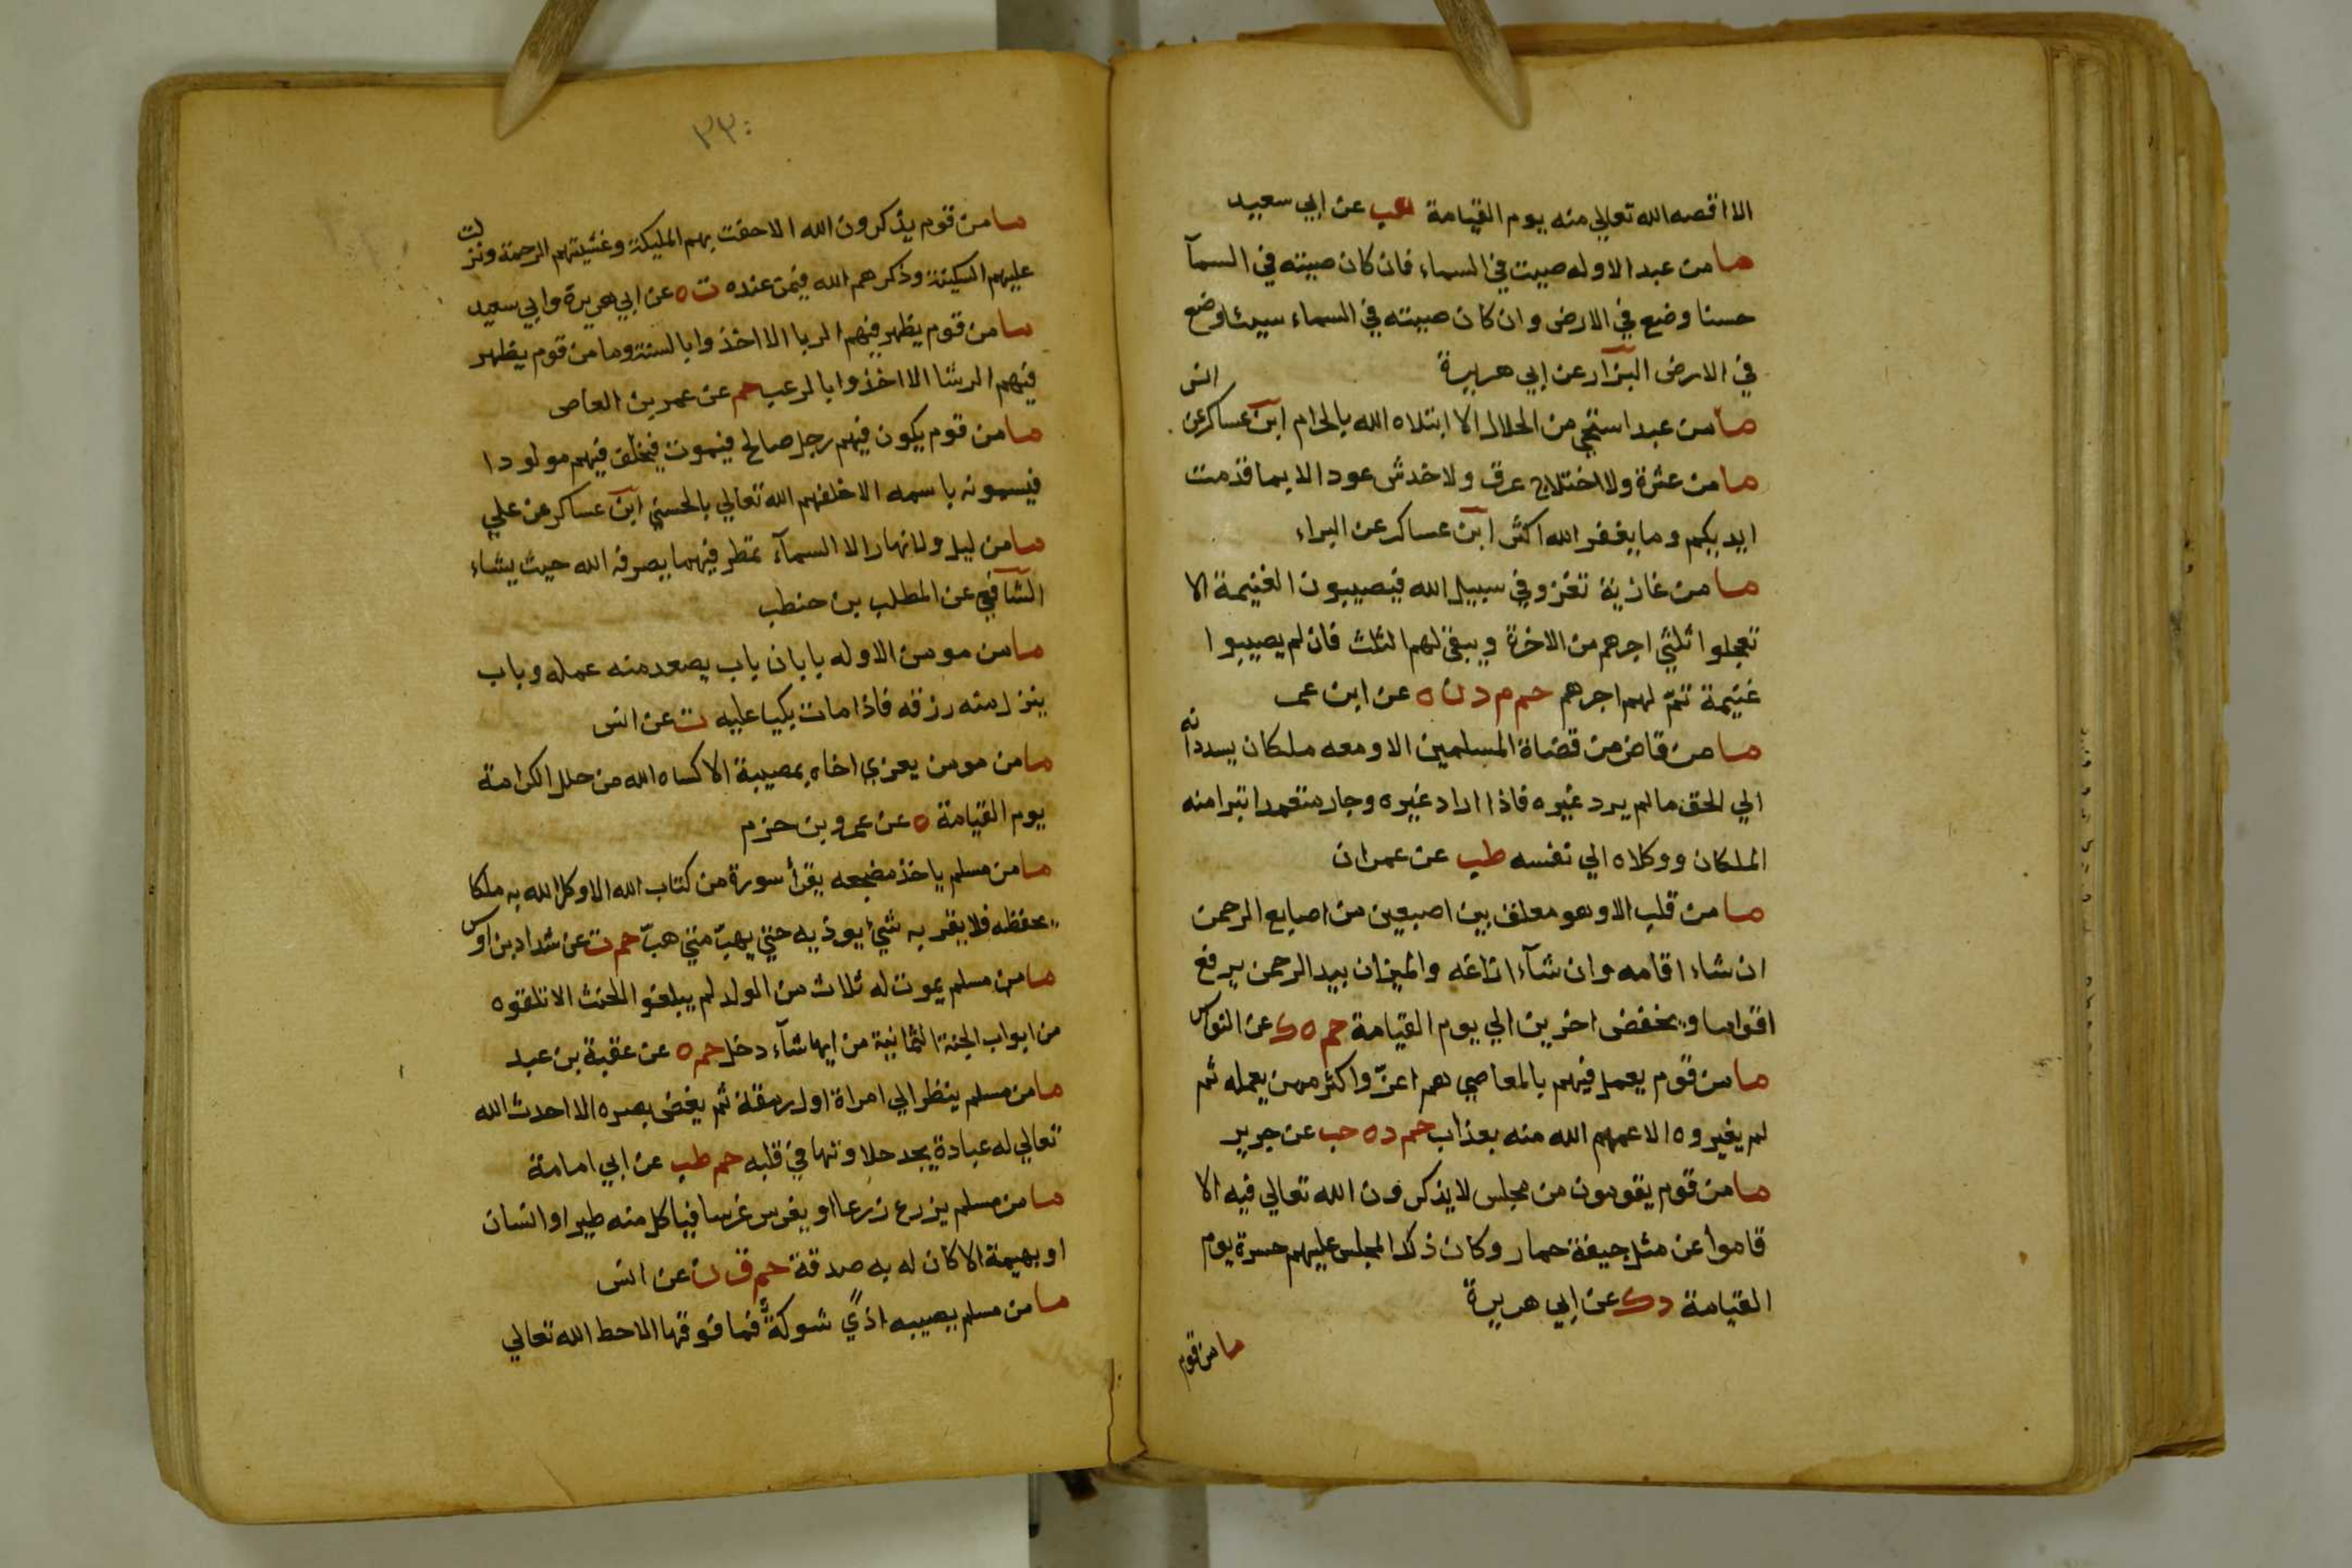 الا اقصه الله تعالي منه يوم القيامة هب عن ابي سعيد
ما من عبد الا وله صيت في السماء فان كان صيته في السمآ
حسنا وضع في الارض وان كان صيته في السماء سيئا وضع
في الارض البزار عن ابي هريرة
ما من عبد استحي من الحلال الا ابتلاه الله بالحرام ابن عساكر عن انس
ما من عثرة ولا اختلاج عرق ولا خدش عود الا بما قدمت
ايديكم وما يغفر الله اكثر ابن عساكر عن البراء
ما من غازية تغزو في سبيل الله فيصيبون الغنيمة الا
تعجلوا ثلثي اجرهم من الاخرة ويبقي لهم الثلث فان لم يصيبوا
غنيمة تتم لهم اجرهم حم م د ن ه عن ابن عمر
ما من قاض من قضاة المسلمين الا ومعه ملكان يسددانه
الي الحق ما لم يرد غيره فاذا اراد غيره وجار متعمدا تبرا منه
الملكان ووكلاه الي نفسه طب عن عمران
ما من قلب الا وهو معلق بين اصبعين من اصابع الرحمن
ان شاء اقامه وان شآء ازاغه والميزان بيد الرحمن يرفع
اقواما ويخفض اخرين الي يوم القيامة حم ه ك عن النواس
ما من قوم يعمل فيهم بالمعاصي هم اعز واكثر ممن يعمله ثم
لم يغيروه الا عمهم الله منه بعذاب حم د ه حب عن جرير
ما من قوم يقومون من مجلس لا يذكرون الله تعالي فيه الا
قاموا عن مثل جيفة حمار وكان ذلك المجلس عليهم حسرة يوم
القيامة د ك عن ابي هريرة
ما من قوم
٣٣٠
ما من قوم يذكرون الله الا حفت بهم المليكة وغشيتهم الرحمة ونزلت
عليهم السكينة وذكرهم الله فيمن عنده ت ه عن ابي هريرة وابي سعيد
ما من قوم يظهر فيهم الربا الا اخذوا بالسنة وما من قوم يظهر
فيهم الرشا الا اخذوا بالرعب حم عن عمر بن العاص
ما من قوم يكون فيهم رجل صالح فيموت فيخلف فيهم مولودا
فيسمونه باسمه الا خلفهم الله تعالي بالحسني ابن عساكر عن علي
ما من ليل ولا نهار الا السمآء تمطر فيهما يصرفه الله حيث يشاء
الشافعي عن المطلب بن حنطب
ما من مومن الا وله بابان باب يصعد منه عمله وباب
ينزل منه رزقه فاذا مات بكيا عليه ت عن انس
ما من مومن يعزي اخاه بمصيبة الا كساه الله من حلل الكرامة
يوم القيامة ه عن عمرو بن حزم
ما من مسلم ياخذ مضجعه يقرأ سورة من كتاب الله الا وكل الله به ملكا
يحفظه فلا يقربه شيء يوذيه حتي يهب متي هب حم ت عن شداد بن اوس
ما من مسلم يموت له ثلاث من الولد لم يبلغوا الحنث الا تلقوه
من ابواب الجنة الثمانية من ايها شآء دخل حم ه عن عقبة بن عبد
ما من مسلم ينظر الي امراة اول رمقة ثم يغض بصره الا احدث الله
تعالي له عبادة يجد حلاوتها في قلبه حم طب عن ابي امامة
ما من مسلم يزرع زرعا او يغرس غرسا فياكل منه طير او انسان
او بهيمة الا كان له به صدقة حم ق ت عن انس
ما من مسلم يصيبه اذي شوكة فما فوقها الا حط الله تعالي